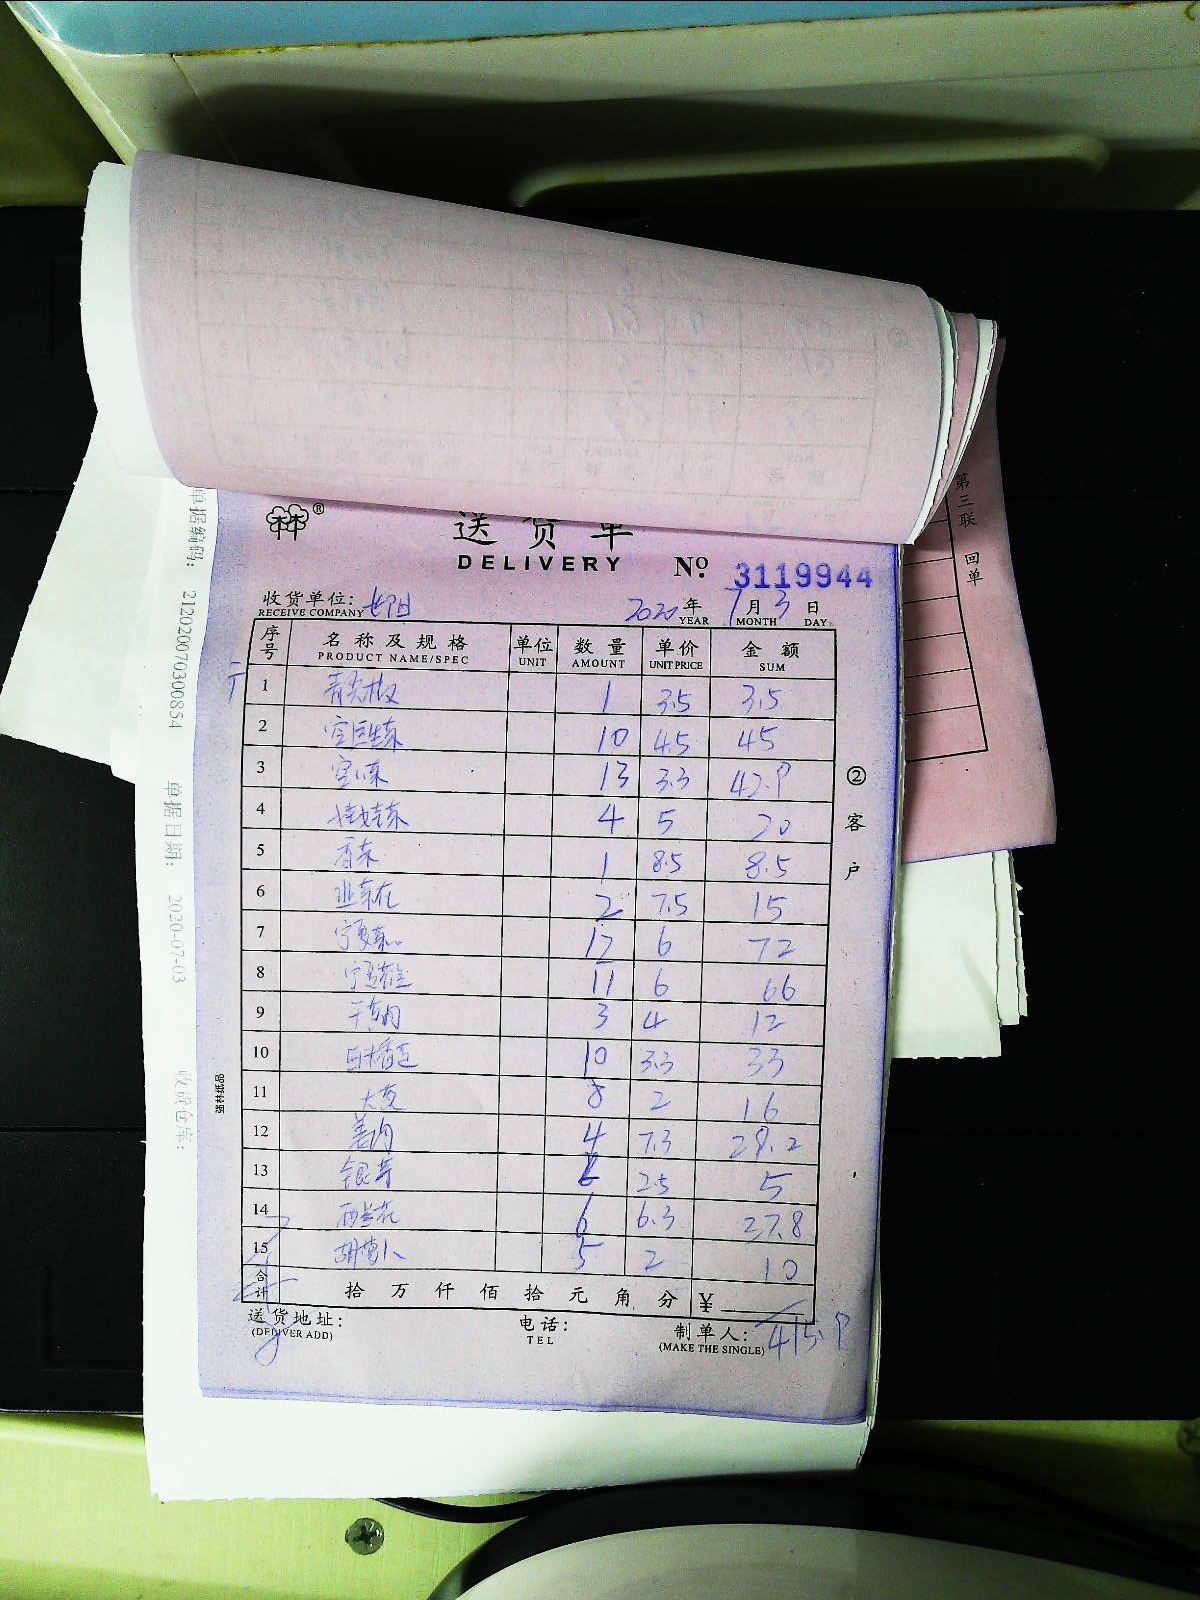 送货单
DELIVERY
№ 3119944
收货单位：
RECEIVE COMPANY
2020年7月3日
YEAR MONTH DAY
序号 名称及规格 单位 数量 单价 金额
PRODUCT NAME/SPEC UNIT AMOUNT UNIT PRICE SUM
1 青尖椒 1 3.5 3.5
2 10 4.5 45
3 13 3.3 42.9
4 娃娃菜 4 5 20
5 香菜 1 8.5 8.5
6 韭菜花 2 7.5 15
7 12 6 72
8 11 6 66
9 3 4 12
10 10 3.3 33
11 8 2 16
12 姜肉 4 7.3 29.2
13 银芽 2 2.5 5
14 西兰花 6 6.3 37.8
15 胡萝卜 5 2 10
合计 拾万仟佰拾元角分 ¥
415.9
送货地址：
(DELIVER ADD)
电话：
TEL
制单人：
(MAKE THE SINGLE)
②客户
强林纸品
单据编码： 212020070300854
单据日期： 2020-07-03
收货仓库：
第三联 回单